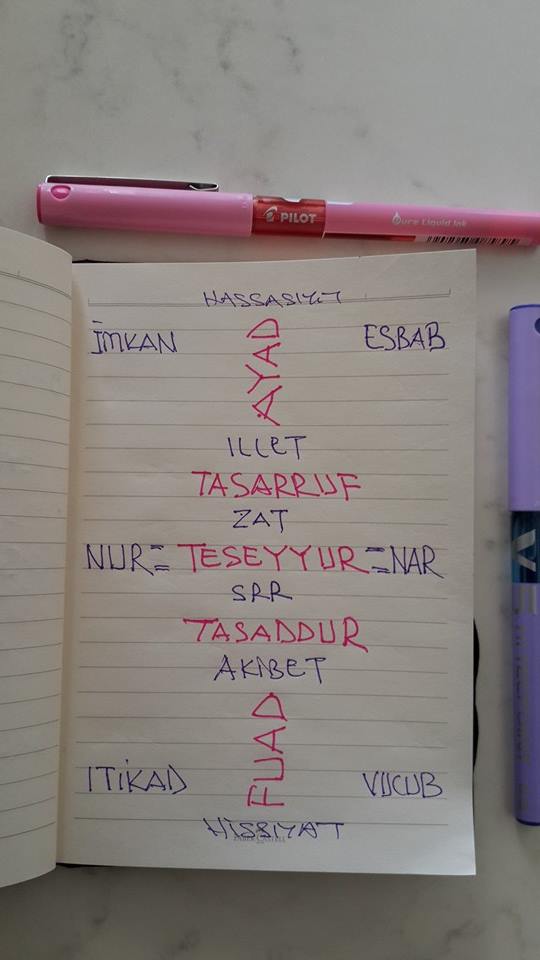 PILOT
Pure Liquid Ink
HASSASIYET
İMKAN
ESBAB
AYAD
ILLET
TASARRUF
ZAT
NUR=TESEYYUR=NAR
SRR
TASADDUR
AKIBET
FUAD
ITİKAD
VUCUB
HİSSİYAT